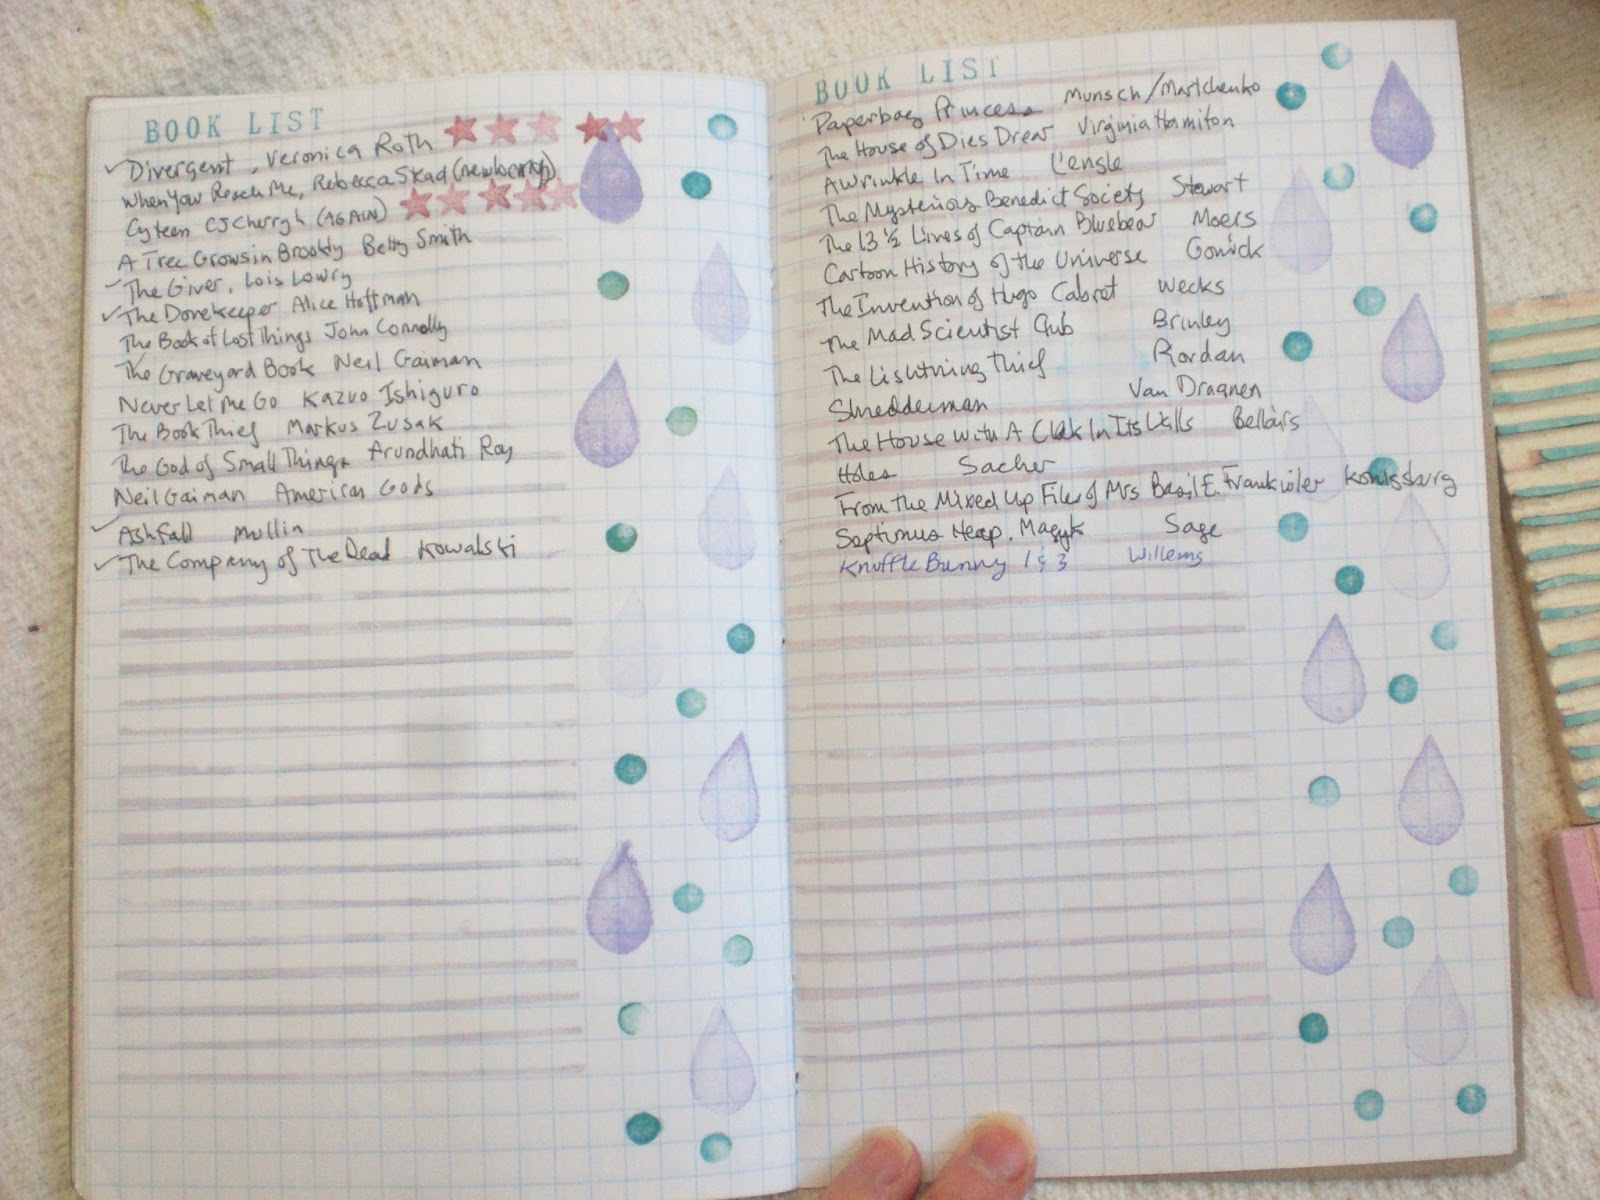 BOOK LIST
✓ Divergent, Veronica Roth
When You Reach Me, Rebecca Stead (newberry)
Cyteen CJ Cherryh (AGAIN)
A Tree Grows in Brookly Betty Smith
✓ The Giver, Lois Lowry
✓ The Dovekeeper Alice Hoffman
The Book of Lost Things John Connolly
The Graveyard Book Neil Gaiman
Never Let Me Go Kazuo Ishiguro
The Book Thief Markus Zusak
The God of Small Things Arundhati Roy
Neil Gaiman American Gods
✓ Ashfall Mullin
✓ The Company of The Dead Kowalski
BOOK LIST
Paperbag Princess Munsch/Martchenko
The House of Dies Drear Virginia Hamilton
A Wrinkle In Time L'engle
The Mysterious Benedict Society Stewart
The 13 ½ Lives of Captain Bluebear Moers
Cartoon History of the Universe Gonick
The Invention of Hugo Cabret
The Mad Scientist Club Brinley
The Lightning Thief Riordan
Shredderman Van Draanen
The House With A Clock In Its Walls Bellairs
Holes Sacher
From the Mixed Up Files of Mrs Basil E. Frankwiler Konigsburg
Septimus Heap. Magyk Sage
Knuffle Bunny 1 & 3 Willems